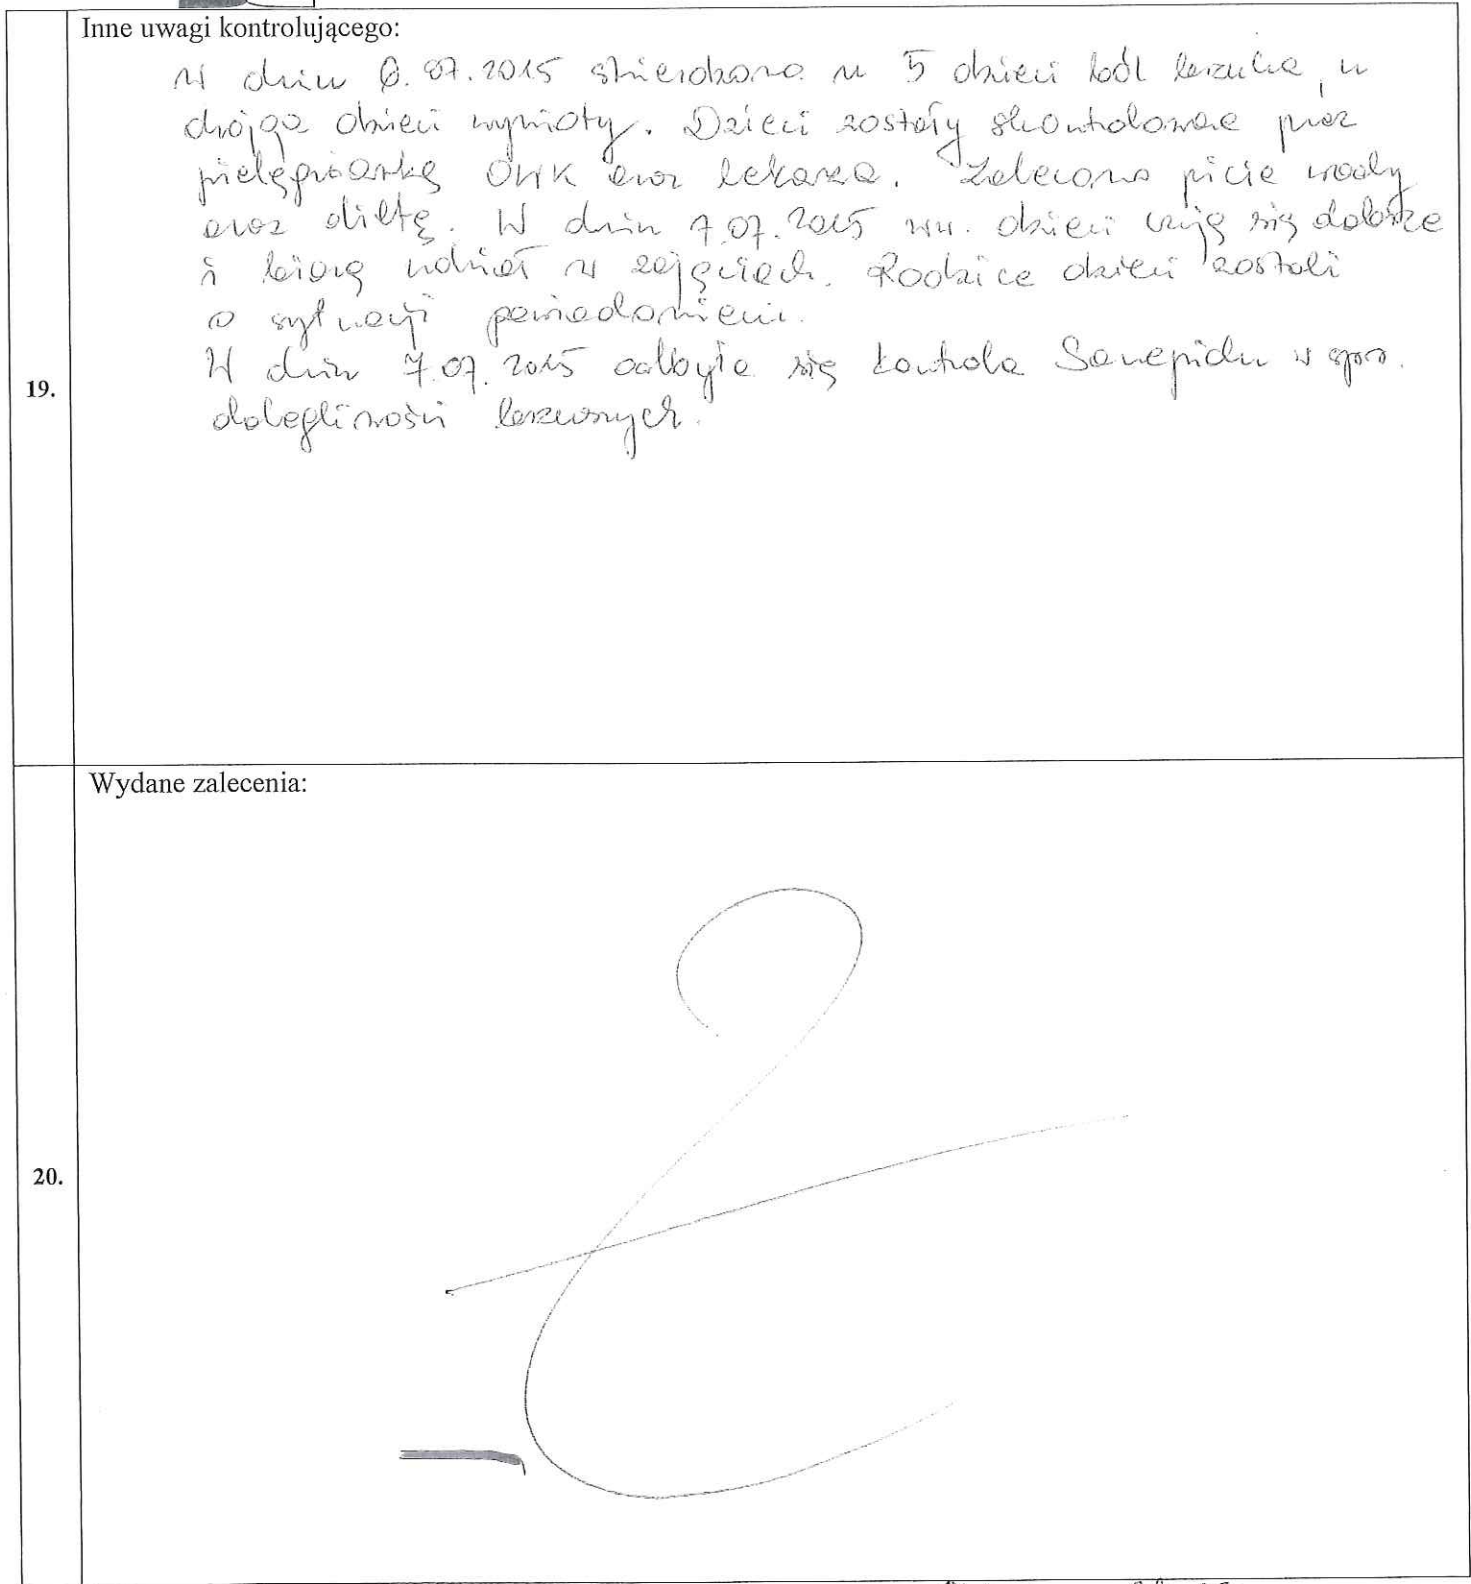 Inne uwagi kontrolującego:
W dniu 6.07.2015 stwierdzono u 5 dzieci ból brzucha, u
dwójga dzieci wymioty. Dzieci zostały skontrolowane przez
pielęgniarkę OWK oraz lekarza. Zalecono picie wody
oraz dietę. W dniu 7.07.2015 ww. dzieci czują się dobrze
i biorą udział w zajęciach. Rodzice dzieci zostali
o sytuacji powiadomieni.
W dniu 7.07.2015 odbyła się kontrola Sanepidu w spr.
19.
dolegliwości brzusznych.
Wydane zalecenia:
20.